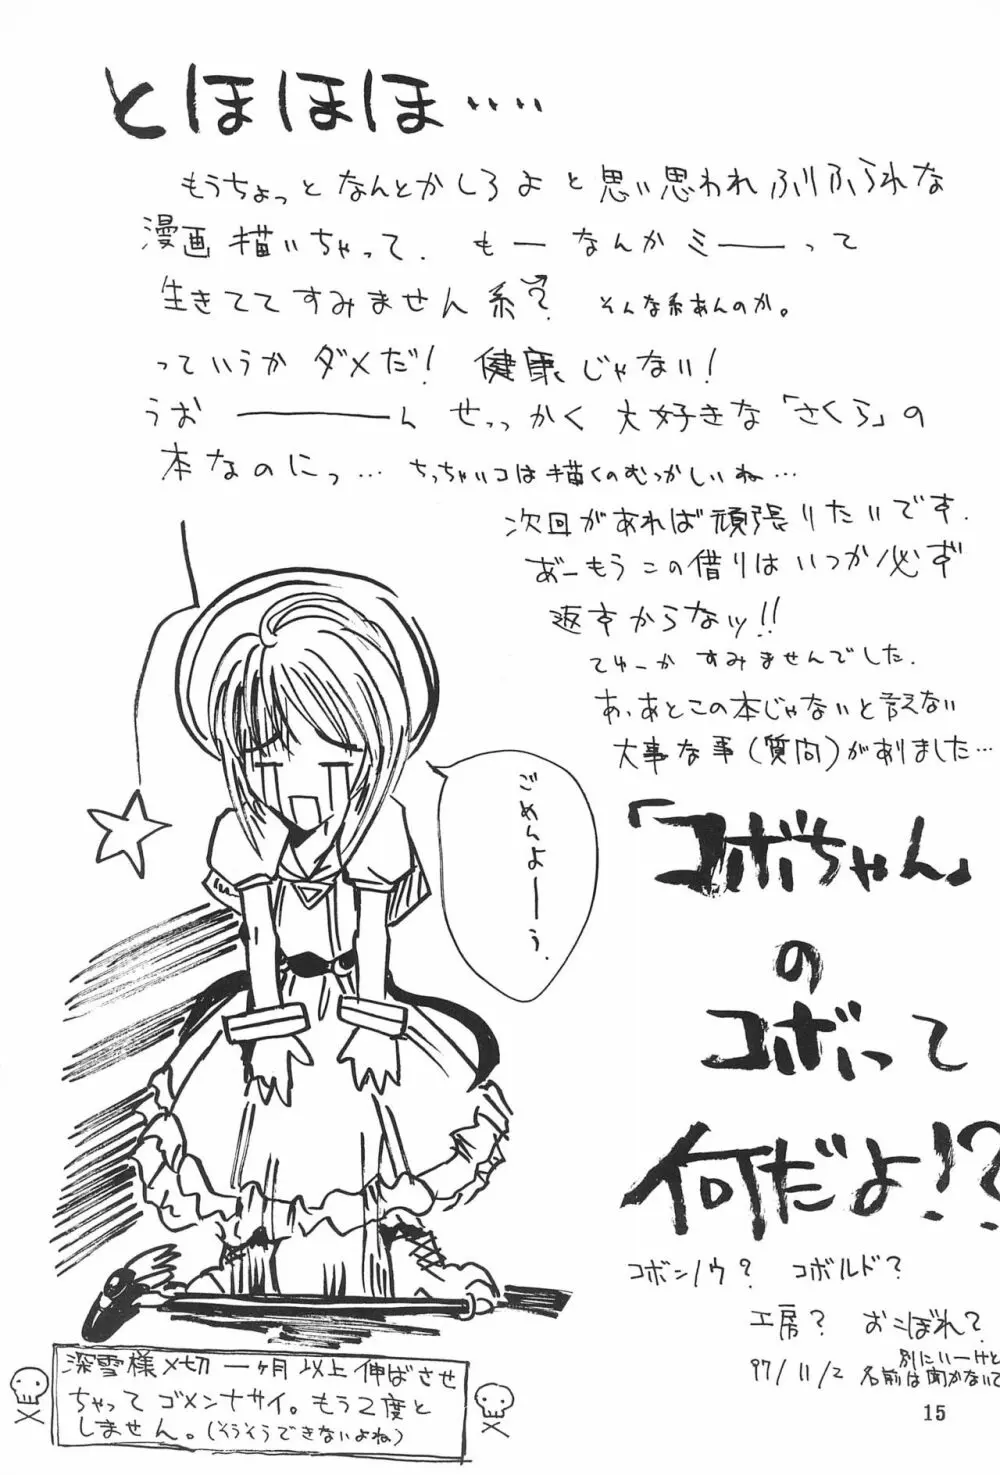 とほほほ‥‥
もうちょっとなんとかしろよと思い思われふりふられな
漫画描いちゃって. もーなんかミ――って
生きててすみません系? そんな系あんのか。
っていうかダメだ! 健康じゃない!
うお――――ん せっかく大好きな「さくら」の
本なのにっ… ちっちゃいコは描くのむつかしいね…
次回があれば頑張りたいです.
あーもうこの借りはいつか必ず
返すからなッ!!
てゆーかすみませんでした.
あ、あとこの本じゃないと言えない
大事な事(質問)がありました…
ごめんよーう.
「コボちゃん」
の
コボって
何だよ!?
コボンノウ? コボルド?
工房? おこぼれ?
別にいーけど
97/11/2 名前は聞かないで
深雪様〆切一ヶ月以上伸ばさせ
ちゃってゴメンナサイ。もう2度と
しません。(そうそうできないよね)
15